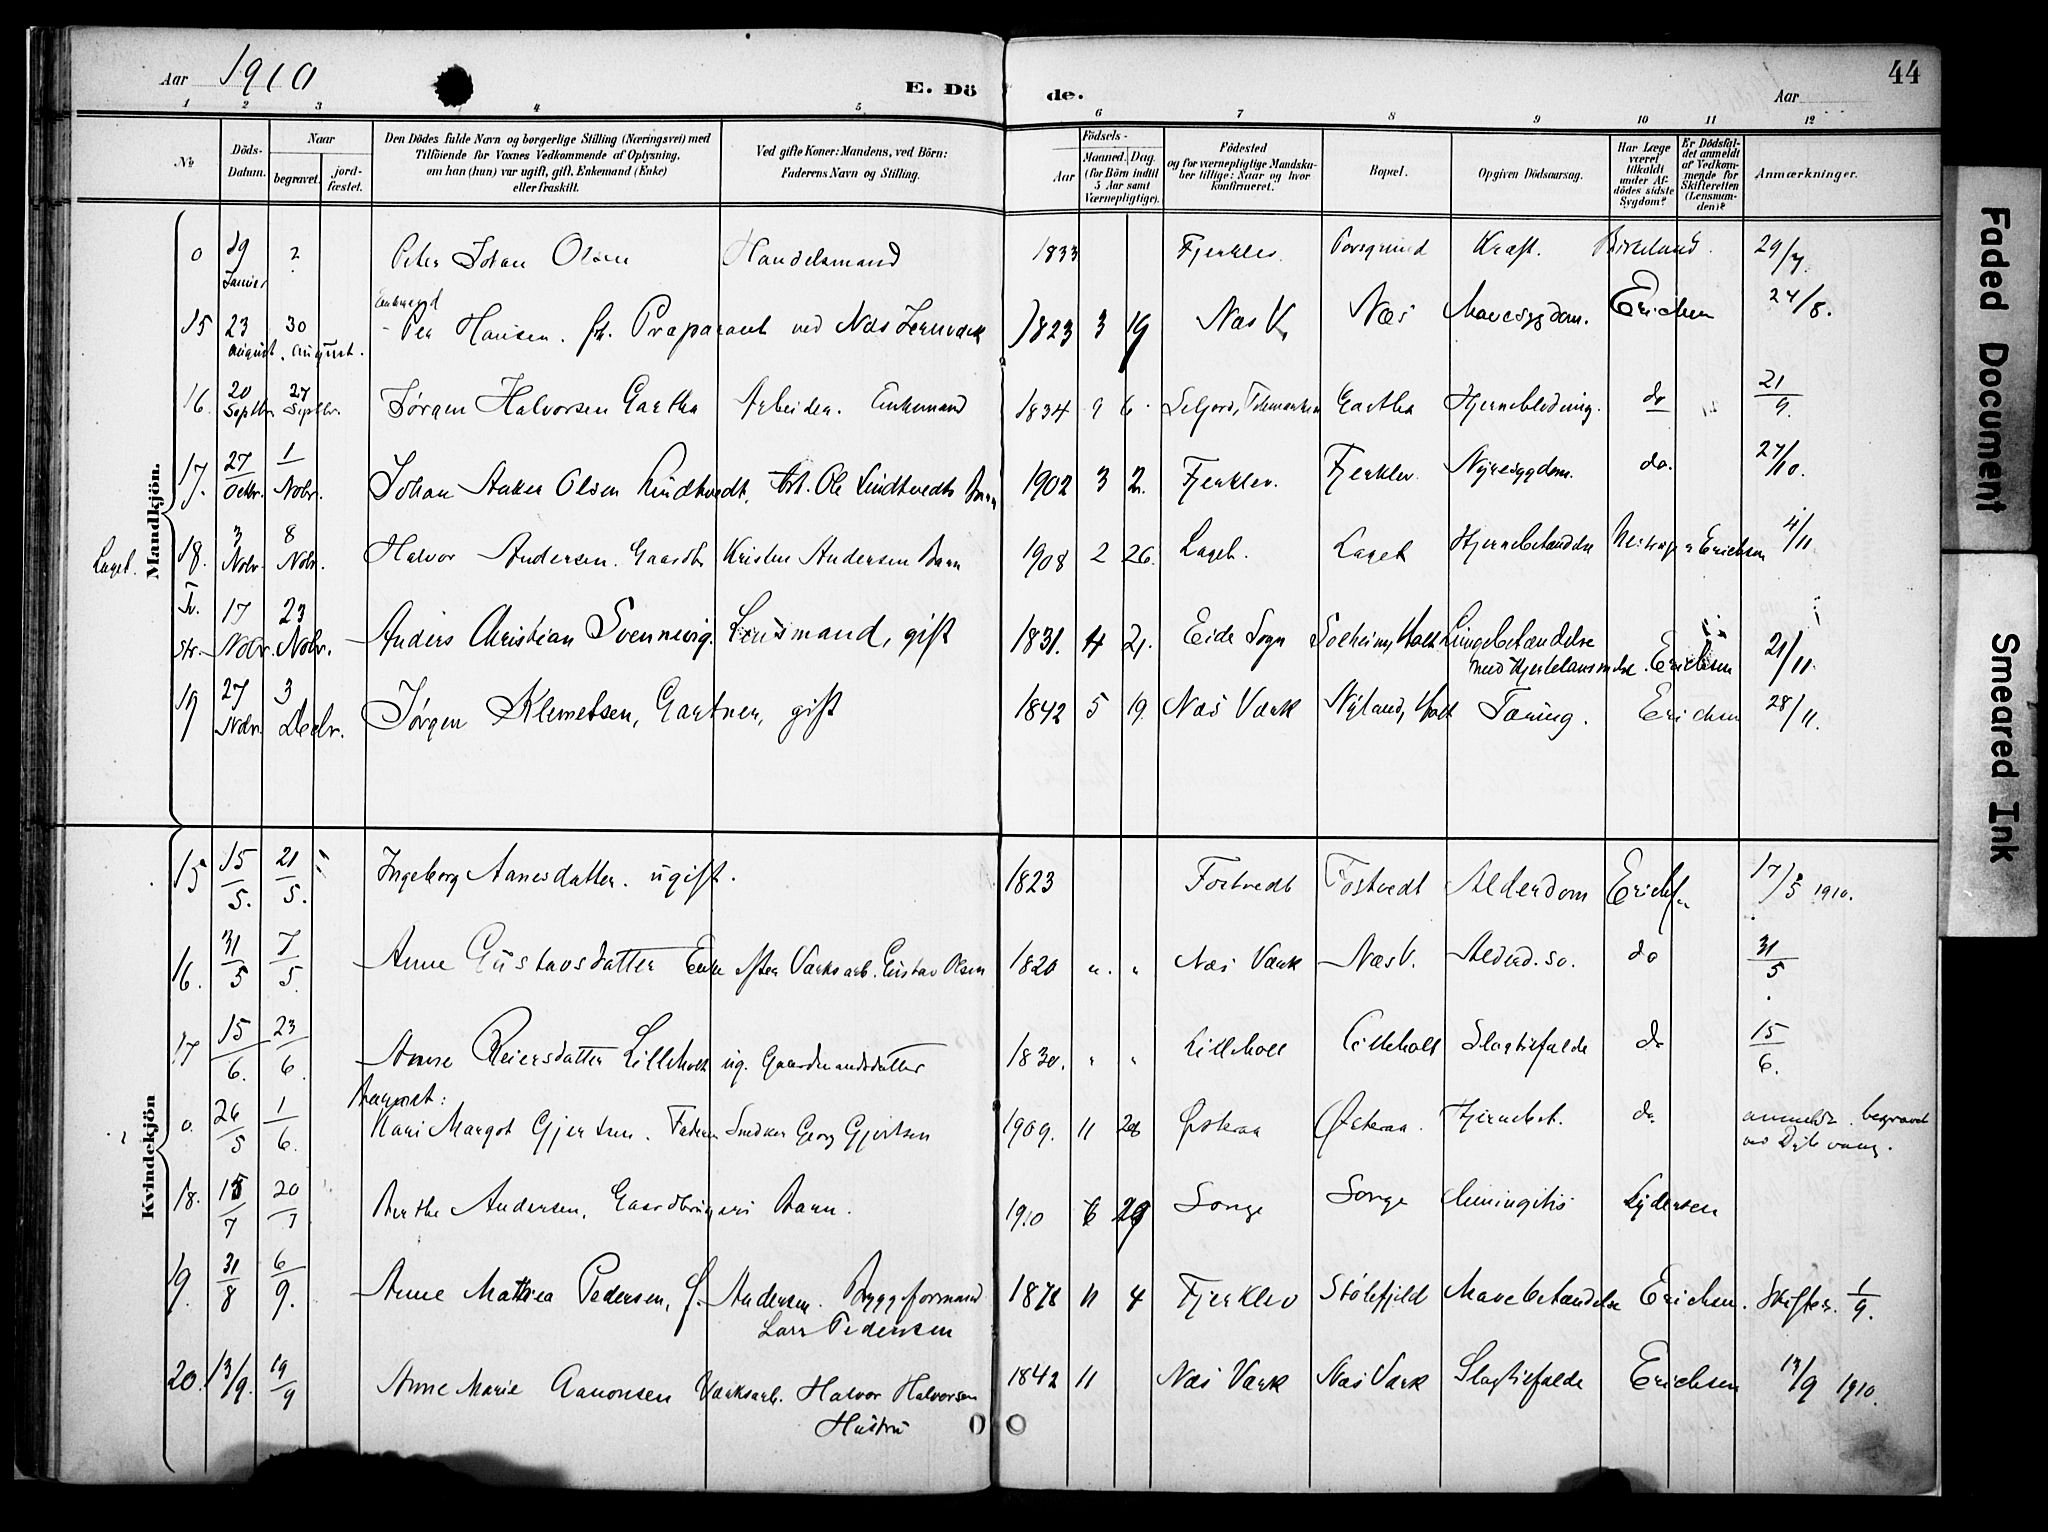 Aar 1910
E. Dö de.
Aar
44
1 2 3 4 5 6 7 8 9 10 11 12
No
Döds-Datum.
Naar
begravet.
jord-fæstet.
Den Dödes fulde Navn og borgerlige Stilling (Næringsvei) med
Tilföiende for Voxnes Vedkommende af Oplysning,
om han (hun) var ugift, gift, Enkemand (Enke)
eller fraskilt.
Ved gifte Koner: Mandens, ved Börn:
Faderens Navn og Stilling.
Födsels-
Aar
Maaned. Dag.
(for Börn indtil
5 Aar samt
Værnepligtige).
Födested
og for værnepligtige Mandska-
ber tillige: Naar og hvor
konfirmeret.
Bopæl.
Opgiven Dödsaarsag.
Har Læge
været
tilkaldt
under Af-
dödes sidste
Sygdom?
Er Dödsfal-
det anmeldt
af Vedkom-
mende for
Skifteretten
(Lensman-
den)?
Anmærkninger.
Mandkjön.
0 19 Januar 2 Peter Johan Olsen Handelsmand 1833 Fjerklev Porsgrund Kræft. Birkeland. 29/7.
Enkemand
15 23 august. 30 august. Per Hansen. fh. Præparant ved Næs Jernværk 1823 3 19 Næs V. Næs Mavesygdom. Erichsen 24/8.
16. 20 Septbr. 27 Septbr. Jørgen Halvorsen Gartha Arbeider. Enkemand 1834 9 6. Seljord, Telemarken Gartha Hjerneblödning. do 21/9.
17. 27/Octbr. 1/Nobr. Johan Aaker Olsen Lindtvedt, Arb. Ole Lindtvedts Barn 1902 3 2. Fjerklev. Fjerklev. Nyresygdom. do. 27/10.
Laget. 18. 3 Nobr. 8 Nobr. Halvor Andersen. Gaardbr Kristen Andersen Barn 1908 2 26. Laget. Laget Hjernebetændelse Erichsen 4/11
Tv. str. 17 Nobr. 23 Nobr. Anders Christian Svennevig. Lensmand, gift 1831. 4 21. Eide Sogn Solheim, Holt Lungebetændelse
med Hjertelammelse. Erichsen 21/11.
19 27 Nobr. 3 Decbr. Jørgen Klemetsen, Gartner, gift 1842 5 19. Næs Værk Nyland, Holt Tæring. Erichsen 28/11.
Kvindekjön
15 15/5. 21/5. Ingeborg Aanesdatter. ugift. 1823 Fostvedt Fostvedt Alderdom Erichsen 17/5 1910.
16. 31/5 7/5. Anne Gustavsdatter Enke efter Værksarb. Gustav Olsen 1820 " " Næs Værk Næs V. Alderd. sv. do 31/5
17 15/6. 23/6. Anne Reiersdatter Lilleholt ug. Gaardmandsdatter 1830. " " Lilleholt Lilleholt Slagtilfælde do 15/6.
0. 26/5 1/6. Kari Margot Gjertsen. Faderen Snedker Georg Gjertsen 1909. 11 28 Østeraa Østeraa. Hjernebet. do anmeldt. begravet
ved Dybvaag.
18. 15/7 20/7 Berthe Andersen, Gaardbrugers Barn. 1910 6 29 Songe Songe Meningitis Lydersen
19. 31/8 6/9. Anne Mathea Pedersen, f. Andersen. Byggeformand
Lars Pedersen 1878 11 4 Fjerklev Stølefjeld Mavebetændelse Erichsen. Skifter. 1/9.
20. 13/9. 19/9 Anne Marie Aanonsen Værksarb. Halvor Halvorsen
Hustru 1842 11 Næs Værk Næs Værk Slagtilfælde Erichsen 13/9 1910.
Faded Document
Smeared Ink